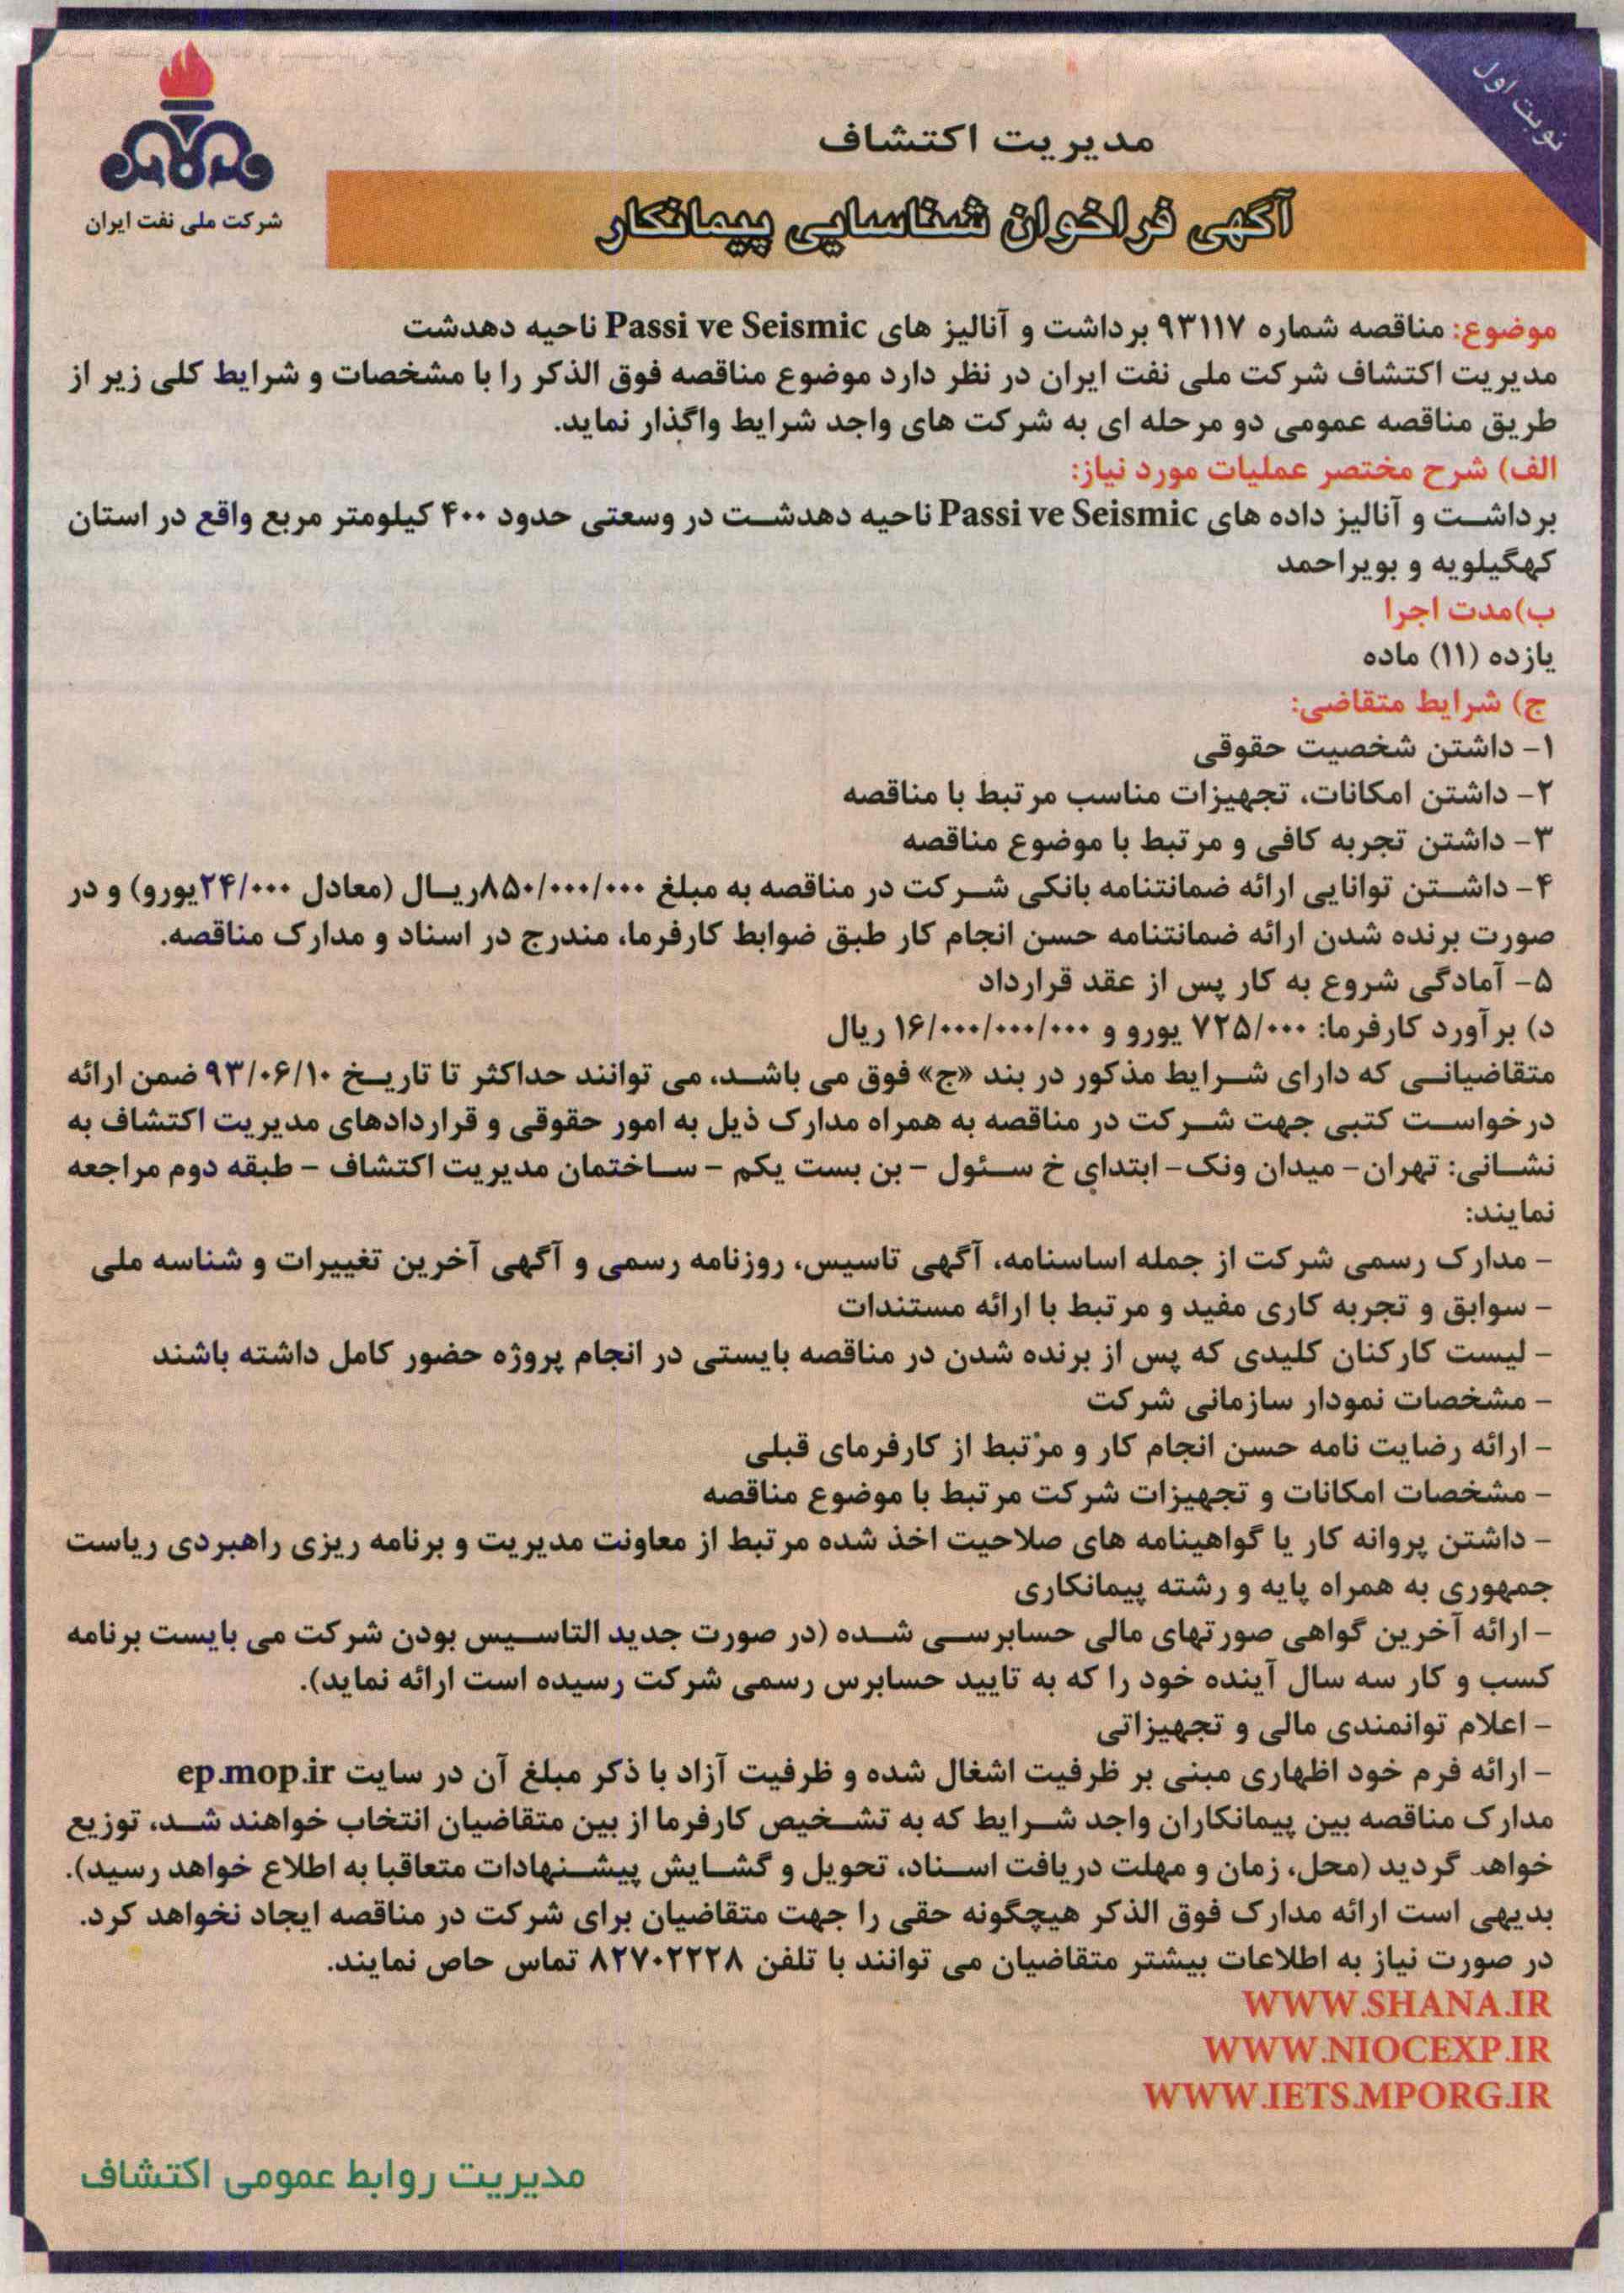 نوبت اول
شرکت ملی نفت ایران
مدیریت اکتشاف
آگهی فراخوان شناسایی پیمانکار
موضوع: مناقصه شماره ۹۳۱۱۷ برداشت و آنالیز های Passi ve Seismic ناحیه دهدشت
مدیریت اکتشاف شرکت ملی نفت ایران در نظر دارد موضوع مناقصه فوق الذکر را با مشخصات و شرایط کلی زیر از
طریق مناقصه عمومی دو مرحله ای به شرکت های واجد شرایط واگذار نماید.
الف) شرح مختصر عملیات مورد نیاز:
برداشت و آنالیز داده های Passi ve Seismic ناحیه دهدشت در وسعتی حدود ۴۰۰ کیلومتر مربع واقع در استان
کهگیلویه و بویراحمد
ب)مدت اجرا
یازده (۱۱) ماده
ج) شرایط متقاضی:
۱- داشتن شخصیت حقوقی
۲- داشتن امکانات، تجهیزات مناسب مرتبط با مناقصه
۳- داشتن تجربه کافی و مرتبط با موضوع مناقصه
۴- داشتن توانایی ارائه ضمانتنامه بانکی شرکت در مناقصه به مبلغ ۸۵۰/۰۰۰/۰۰۰ریال (معادل ۲۴/۰۰۰یورو) و در
صورت برنده شدن ارائه ضمانتنامه حسن انجام کار طبق ضوابط کارفرما، مندرج در اسناد و مدارک مناقصه.
۵- آمادگی شروع به کار پس از عقد قرارداد
د) برآورد کارفرما: ۷۲۵/۰۰۰ یورو و ۱۶/۰۰۰/۰۰۰/۰۰۰ ریال
متقاضیانی که دارای شرایط مذکور در بند «ج» فوق می باشد، می توانند حداکثر تا تاریخ ۹۳/۰۶/۱۰ ضمن ارائه
درخواست کتبی جهت شرکت در مناقصه به همراه مدارک ذیل به امور حقوقی و قراردادهای مدیریت اکتشاف به
نشانی: تهران- میدان ونک- ابتدای خ سئول - بن بست یکم - ساختمان مدیریت اکتشاف - طبقه دوم مراجعه
نمایند:
- مدارک رسمی شرکت از جمله اساسنامه، آگهی تاسیس، روزنامه رسمی و آگهی آخرین تغییرات و شناسه ملی
- سوابق و تجربه کاری مفید و مرتبط با ارائه مستندات
- لیست کارکنان کلیدی که پس از برنده شدن در مناقصه بایستی در انجام پروژه حضور کامل داشته باشند
- مشخصات نمودار سازمانی شرکت
- ارائه رضایت نامه حسن انجام کار و مرتبط از کارفرمای قبلی
- مشخصات امکانات و تجهیزات شرکت مرتبط با موضوع مناقصه
- داشتن پروانه کار یا گواهینامه های صلاحیت اخذ شده مرتبط از معاونت مدیریت و برنامه ریزی راهبردی ریاست
جمهوری به همراه پایه و رشته پیمانکاری
- ارائه آخرین گواهی صورتهای مالی حسابرسی شده (در صورت جدید التاسیس بودن شرکت می بایست برنامه
کسب و کار سه سال آینده خود را که به تایید حسابرس رسمی شرکت رسیده است ارائه نماید).
- اعلام توانمندی مالی و تجهیزاتی
- ارائه فرم خود اظهاری مبنی بر ظرفیت اشغال شده و ظرفیت آزاد با ذکر مبلغ آن در سایت ep.mop.ir
مدارک مناقصه بین پیمانکاران واجد شرایط که به تشخیص کارفرما از بین متقاضیان انتخاب خواهند شد، توزیع
خواهد گردید (محل، زمان و مهلت دریافت اسناد، تحویل و گشایش پیشنهادات متعاقبا به اطلاع خواهد رسید).
بدیهی است ارائه مدارک فوق الذکر هیچگونه حقی را جهت متقاضیان برای شرکت در مناقصه ایجاد نخواهد کرد.
در صورت نیاز به اطلاعات بیشتر متقاضیان می توانند با تلفن ۸۲۷۰۲۲۲۸ تماس حاص نمایند.
WWW.SHANA.IR
WWW.NIOCEXP.IR
WWW.IETS.MPORG.IR
مدیریت روابط عمومی اکتشاف